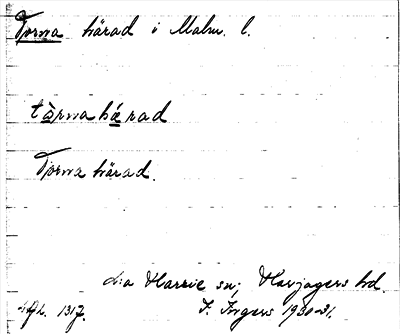 Torna härad i Malm. l.
tòrnahǽrad
Torna härad.
L:a Harrie sn; Harjagers hd.
1317. I. Ingers 1930-31.